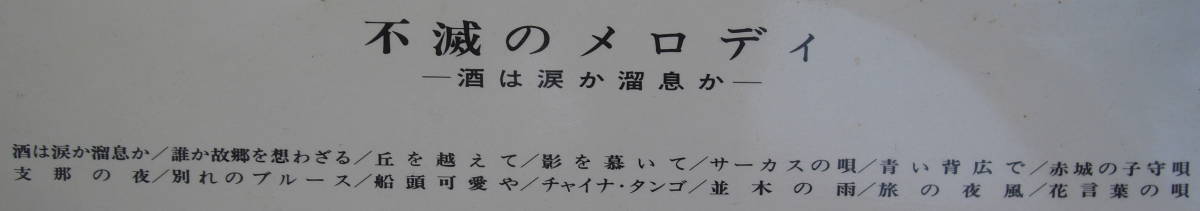 不滅のメロディ
―酒は涙か溜息か―
酒は涙か溜息か/誰か故郷を想わざる/丘を越えて/影を慕いて/サーカスの唄/青い背広で/赤城の子守唄
支那の夜/別れのブルース/船頭可愛や/チャイナ・タンゴ/並木の雨/旅の夜風/花言葉の唄